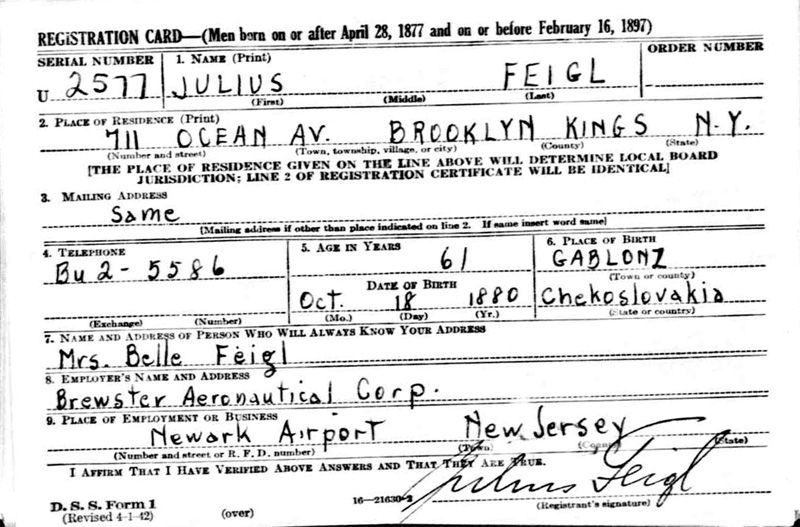 REGISTRATION CARD—(Men born on or after April 28, 1877 and on or before February 16, 1897)
SERIAL NUMBER 1. NAME (Print) ORDER NUMBER
U 2577 JULIUS FEIGL
(First) (Middle) (Last)
2. PLACE OF RESIDENCE (Print)
711 OCEAN AV. BROOKLYN KINGS N.Y.
(Number and street) (Town, township, village, or city) (County) (State)
[THE PLACE OF RESIDENCE GIVEN ON THE LINE ABOVE WILL DETERMINE LOCAL BOARD
JURISDICTION; LINE 2 OF REGISTRATION CERTIFICATE WILL BE IDENTICAL]
3. MAILING ADDRESS
Same
[Mailing address if other than place indicated on line 2. If same insert word same]
4. TELEPHONE 5. AGE IN YEARS 6. PLACE OF BIRTH
Bu 2-5586 61 GABLONZ
(Town or county)
DATE OF BIRTH
Oct. 18 1880 Chekoslovakia
(Exchange) (Number) (Mo.) (Day) (Yr.) (State or country)
7. NAME AND ADDRESS OF PERSON WHO WILL ALWAYS KNOW YOUR ADDRESS
Mrs. Belle Feigl
8. EMPLOYER'S NAME AND ADDRESS
Brewster Aeronautical Corp.
9. PLACE OF EMPLOYMENT OR BUSINESS
Newark Airport New Jersey
(Number and street or R. F. D. number) (Town) (County) (State)
I AFFIRM THAT I HAVE VERIFIED ABOVE ANSWERS AND THAT THEY ARE TRUE.
Julius Feigl
D. S. S. Form 1
(Revised 4-1-42) (over) 16—21630-2 (Registrant's signature)